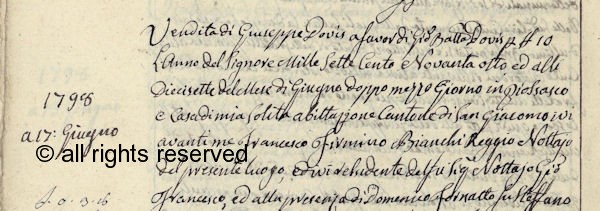 Vendita di Giuseppe Dovis a favor di Gio Batta Dovis p # 10
L'Anno del Signore Mille Sette Cento e Novanta otto ed alli
Diecisette del Mese di Giugno doppo mezzo Giorno in Piossasco
e Casa di mia solita abittazione Cantone di San Giacomo ivi
avanti me Francesco Firmino Bianchi Reggio Nottajo
del presente luogo, ed ivi rehudente del fu Sigr Nottajo Gio
Francesco, ed alla presenza di Domenico Fornatto fu Steffano
1798
a 17: Giugno
© all rights reserved